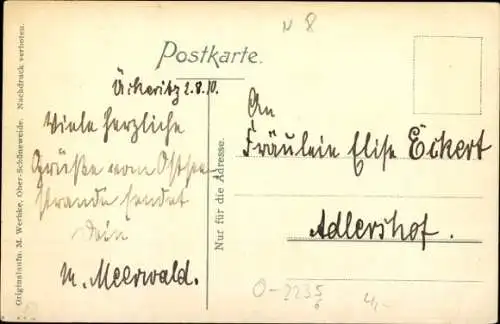 N 8
Postkarte.
Ückeritz 2.8.10.
Viele herzliche
Grüße vom Ostsee
strande sendet
Dein
M. Meerwald.
An
Fräulein Elise Eckert
Adlershof.
Nur für die Adresse.
Originalaufn. M. Werbke, Ober-Schöneweide. Nachdruck verboten.
O-2235
6
4,-